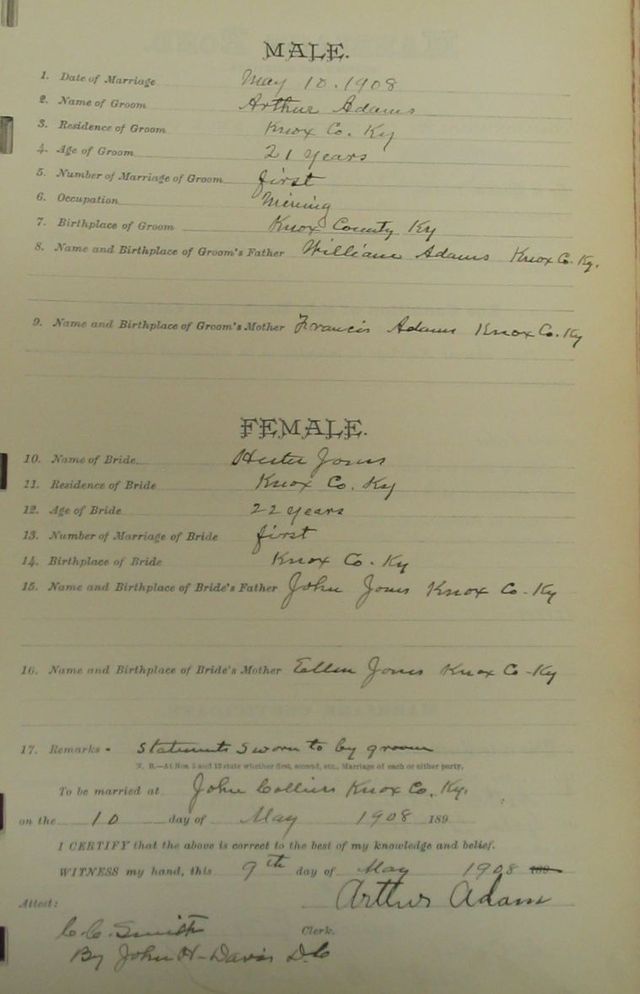 MALE.
1. Date of Marriage May 10. 1908
2. Name of Groom Arthur Adams
3. Residence of Groom Knox Co. Ky
4. Age of Groom 21 years
5. Number of Marriage of Groom first
6. Occupation Mining
7. Birthplace of Groom Knox County Ky
8. Name and Birthplace of Groom's Father William Adams Knox Co. Ky.
9. Name and Birthplace of Groom's Mother Francis Adams Knox Co. Ky
FEMALE.
10. Name of Bride Hester Jones
11. Residence of Bride Knox Co. Ky
12. Age of Bride 22 years
13. Number of Marriage of Bride first
14. Birthplace of Bride Knox Co. Ky
15. Name and Birthplace of Bride's Father John Jones Knox Co. Ky
16. Name and Birthplace of Bride's Mother Ellen Jones Knox Co. Ky
17. Remarks - Statements sworn to by groom
N. B.—At Nos. 5 and 13 state whether first, second, etc., Marriage of each or either party.
To be married at John Collins Knox Co. Ky.
on the 10 day of May 1908 189
I CERTIFY that the above is correct to the best of my knowledge and belief.
WITNESS my hand, this 9th day of May 1908
Arthur Adams
Attest:
C. C. Smith Clerk.
By John H. Davis D.C